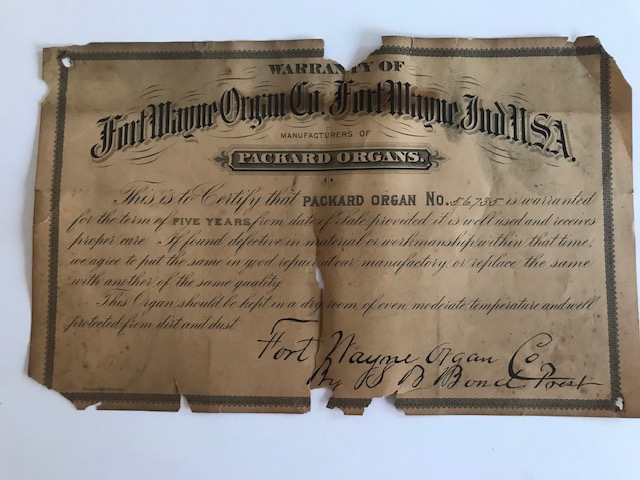 WARRANTY OF
Fort Wayne Organ Co. Fort Wayne Ind U.S.A.
MANUFACTURERS OF
PACKARD ORGANS.
This is to Certify that PACKARD ORGAN No. 56,735 is warranted
for the term of FIVE YEARS from date of Sale provided it is well used and receives
proper care. If found defective in material or workmanship within that time,
we agree to put the same in good repair at our manufactory, or replace the same
with another of the same quality.
This Organ should be kept in a dry room, of even, moderate temperature and well
protected from dirt and dust.
Fort Wayne Organ Co
By S B Bond Prest